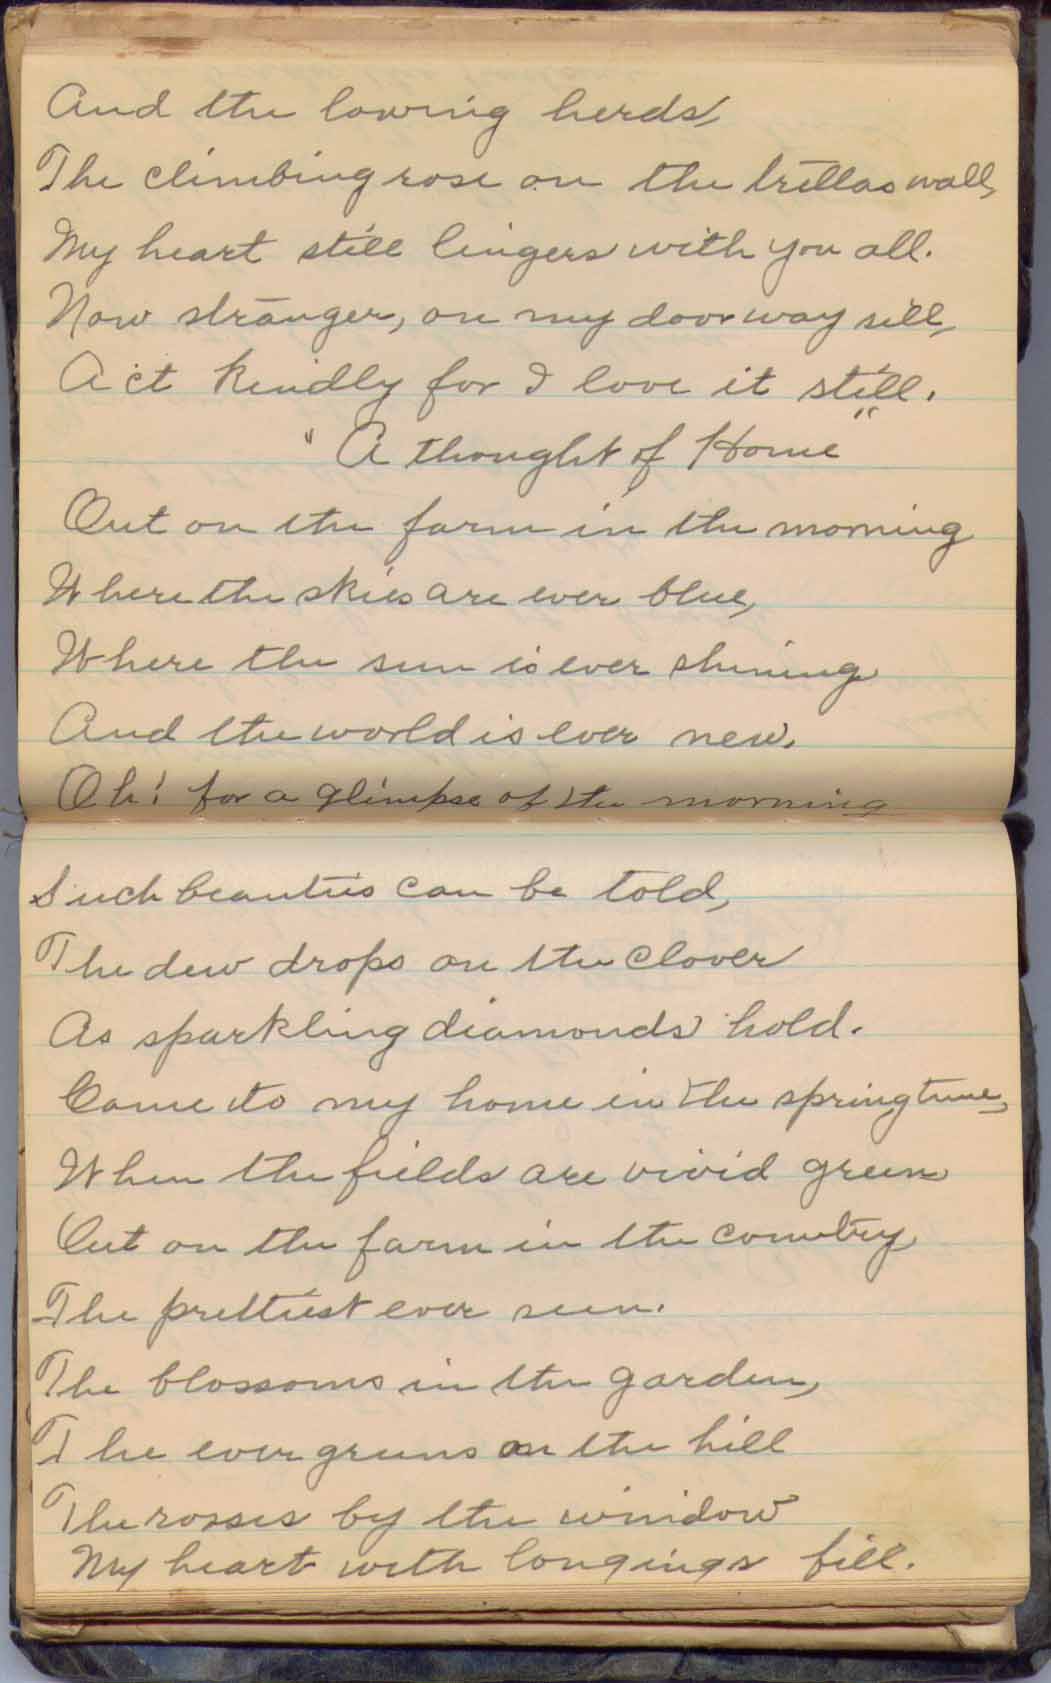 And the lowing herds,
The climbing rose on the trillas wall,
My heart still lingers with you all.
Now stranger, on my doorway sill,
Act kindly for I love it still.
"A thought of Home"
Out on the farm in the morning
Where the skies are ever blue,
Where the sun is ever shining
And the world is ever new.
Oh! for a glimpse of the morning
Such beauties can be told,
The dew drops on the clover
As sparkling diamonds hold.
Come to my home in the springtime,
When the fields are vivid green
Out on the farm in the country
The prettiest ever seen.
The blossoms in the garden,
The evergreens on the hill
The rosses by the window
My heart with longings fill.